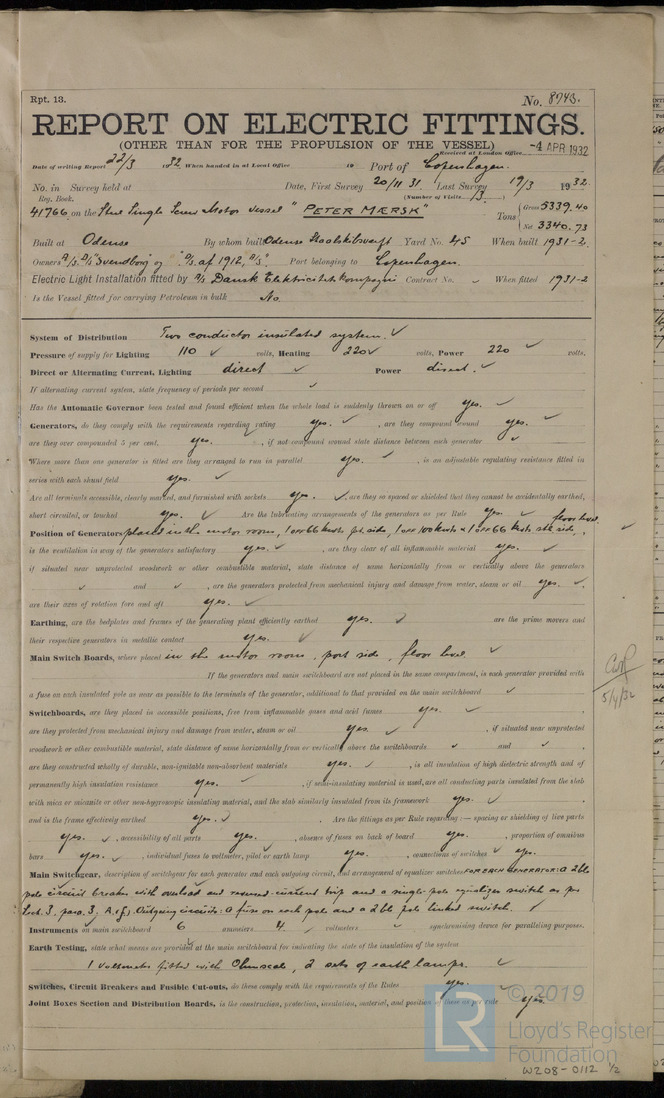 Rpt. 13. No. 8743.
REPORT ON ELECTRIC FITTINGS.
(OTHER THAN FOR THE PROPULSION OF THE VESSEL)
Received at London Office -4 APR 1932
Date of writing Report 22/3 1932 When handed in at Local Office 19 Port of Copenhagen.
No. in Survey held at Date, First Survey 20/11 31 Last Survey 19/3 1932.
Reg. Book. (Number of Visits 13.)
41766 on the Steel Single Screw Motor vessel "PETER MÆRSK" Tons Gross 5339.40
Net 3340.73
Built at Odense By whom built Odense Staalskibsværft Yard No. 45 When built 1931-2.
Owners A/S. D/S "Svendborg" og "D/S. af 1912, A/S." Port belonging to Copenhagen.
Electric Light Installation fitted by A/S Dansk Elektricitets Kompagni Contract No. ✓ When fitted 1931-2
Is the Vessel fitted for carrying Petroleum in bulk No.
System of Distribution Two conductor insulated system. ✓
Pressure of supply for Lighting 110 ✓ volts, Heating 220 ✓ volts, Power 220 ✓ volts.
Direct or Alternating Current, Lighting direct ✓ Power direct. ✓
If alternating current system, state frequency of periods per second ✓
Has the Automatic Governor been tested and found efficient when the whole load is suddenly thrown on or off yes. ✓
Generators, do they comply with the requirements regarding rating yes. ✓, are they compound wound yes. ✓
are they over compounded 5 per cent. yes. ✓, if not compound wound state distance between each generator ✓
Where more than one generator is fitted are they arranged to run in parallel yes. ✓, is an adjustable regulating resistance fitted in
series with each shunt field yes. ✓
Are all terminals accessible, clearly marked, and furnished with sockets yes. ✓, are they so spaced or shielded that they cannot be accidentally earthed,
short circuited, or touched yes. ✓ Are the lubricating arrangements of the generators as per Rule yes. ✓ floor level.
Position of Generators placed in the motor room, 1 off 66 kwts pt. side, 1 off 100 kwts & 1 off 66 kwts stb. side, ✓
is the ventilation in way of the generators satisfactory yes. ✓, are they clear of all inflammable material yes. ✓
if situated near unprotected woodwork or other combustible material, state distance of same horizontally from or vertically above the generators
✓ and ✓, are the generators protected from mechanical injury and damage from water, steam or oil yes. ✓
are their axes of rotation fore and aft yes. ✓
Earthing, are the bedplates and frames of the generating plant efficiently earthed yes. ✓ are the prime movers and
their respective generators in metallic contact yes. ✓
Main Switch Boards, where placed in the motor room, port side, floor level. ✓
If the generators and main switchboard are not placed in the same compartment, is each generator provided with
a fuse on each insulated pole as near as possible to the terminals of the generator, additional to that provided on the main switchboard ✓
5/4/32
Switchboards, are they placed in accessible positions, free from inflammable gases and acid fumes yes. ✓
are they protected from mechanical injury and damage from water, steam or oil yes. ✓, if situated near unprotected
woodwork or other combustible material, state distance of same horizontally from or vertically above the switchboards ✓ and ✓
are they constructed wholly of durable, non-ignitable non-absorbent materials yes. ✓, is all insulation of high dielectric strength and of
permanently high insulation resistance yes. ✓, if semi-insulating material is used, are all conducting parts insulated from the slab
with mica or micanite or other non-hygroscopic insulating material, and the slab similarly insulated from its framework yes. ✓
and is the frame effectively earthed yes. ✓ Are the fittings as per Rule regarding:— spacing or shielding of live parts
yes. ✓, accessibility of all parts yes. ✓, absence of fuses on back of board yes. ✓, proportion of omnibus
bars yes. ✓, individual fuses to voltmeter, pilot or earth lamp yes. ✓, connections of switches ✓ yes.
Main Switchgear, description of switchgear for each generator and each outgoing circuit, and arrangement of equalizer switches FOR EACH GENERATOR: a 2ble
pole circuit breaker with overload and reversed-current trip and a single-pole equalizer switch as per
Sect. 3, para. 3, Outgoing circuits: a fuse on each pole and a 2ble pole linked switch. ✓
Instruments on main switchboard 6 ammeters 4 ✓ voltmeters ✓ synchronising device for paralleling purposes.
Earth Testing, state what means are provided at the main switchboard for indicating the state of the insulation of the system
1 voltmeter fitted with Ohmscale, 2 sets of earth lamps. ✓
Switches, Circuit Breakers and Fusible Cut-outs, do these comply with the requirements of the Rules yes. ✓
Joint Boxes Section and Distribution Boards, is the construction, protection, insulation, material, and position of these as per rule yes. ✓
© 2019
LR
Lloyd's Register
Foundation
W208-0112 1/2